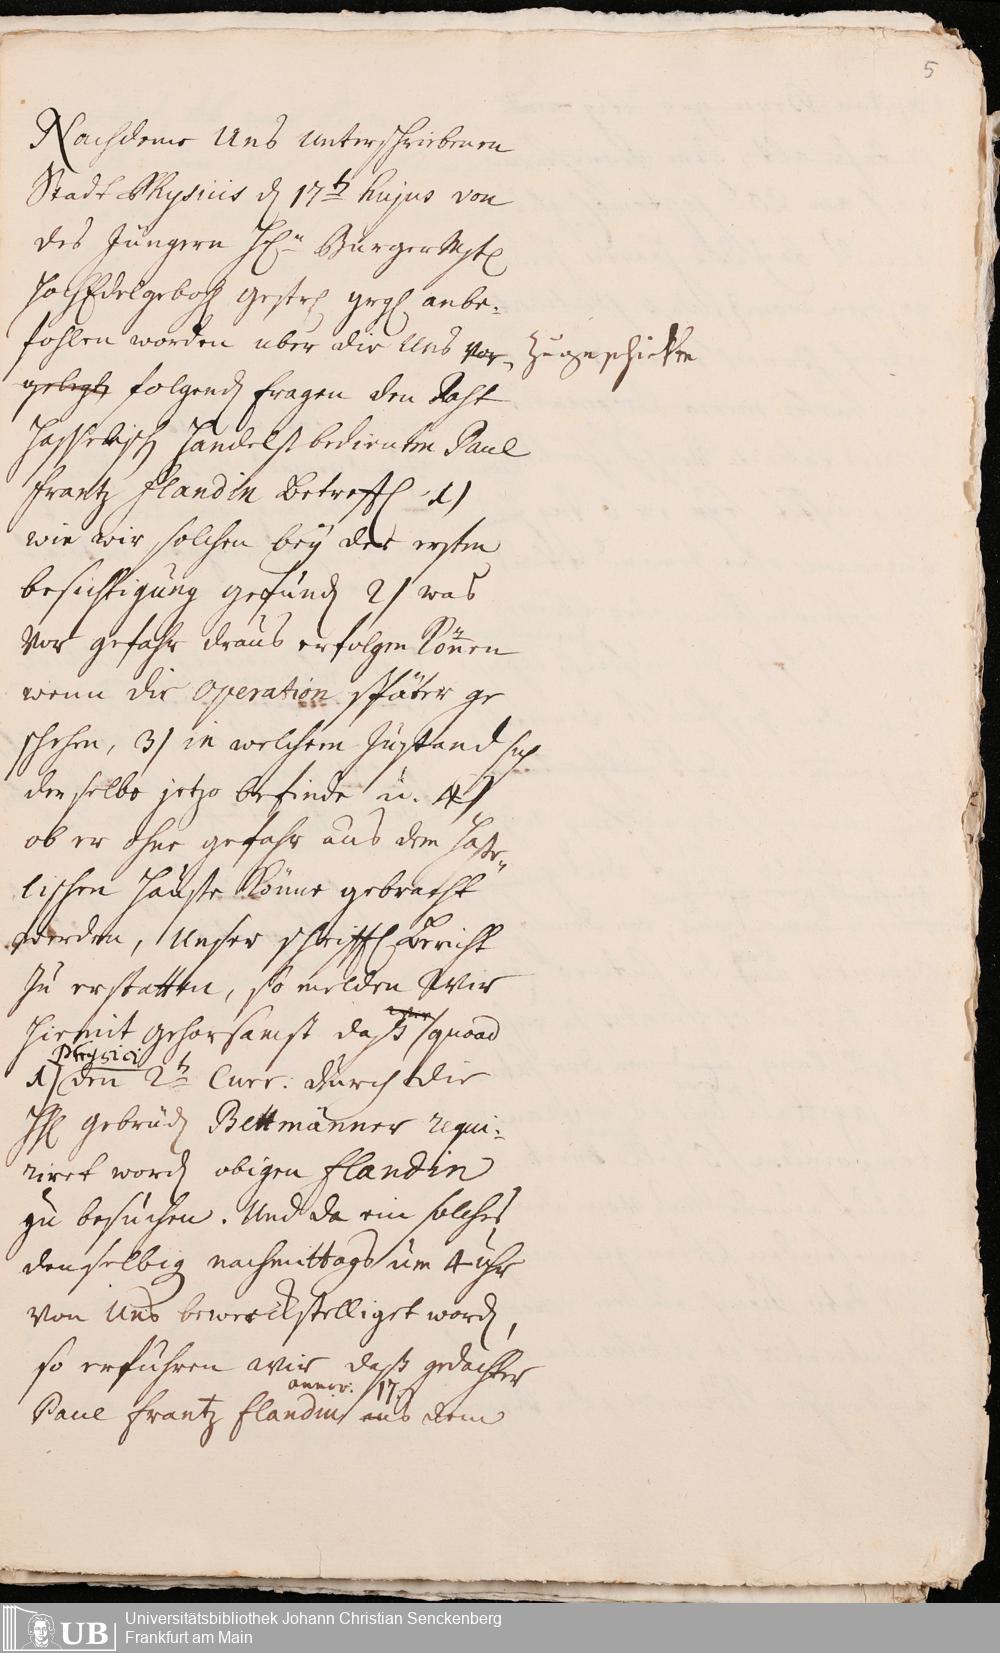 5
Nachdeme Uns unterschriebenen
Stadt Physicis d 17t hujus von
des Jüngern H. BurgerMstr
HochEdelgebohr Gestr anbe-
fohlen worden uber die Uns vor- zugeschickte
gelegte folgend Fragen den
Handelsbedienten Paul
Frantz Flandin betreff 1)
wie wir solchen bey der ersten
besichtigung gefund 2) was
vor gefahr draus erfolgen können
wenn die Operation später ge
schehen, 3) in welchem Zustand sich
derselbe jetzo befinde u. 4)
ob er ohne gefahr aus dem Hasse-
lischen Hauße könne gebracht
werden, Unser schrifftl Bericht
zu erstatten, so melden Wir
hiemit gehorsamst daß wir quoad
Physici
1) den 2t Curr: durch die
HH gebrüd Bettmänner requi-
riret word obigen Flandin
zu besuchen. Und da ein solches
denselbig nachmittags um 4 Uhr
von Uns bewerckstelliget word,
so erfuhren wir daß gedachter
annor: 17.
Paul Frantz Flandin aus dem
UB Universitätsbibliothek Johann Christian Senckenberg
Frankfurt am Main